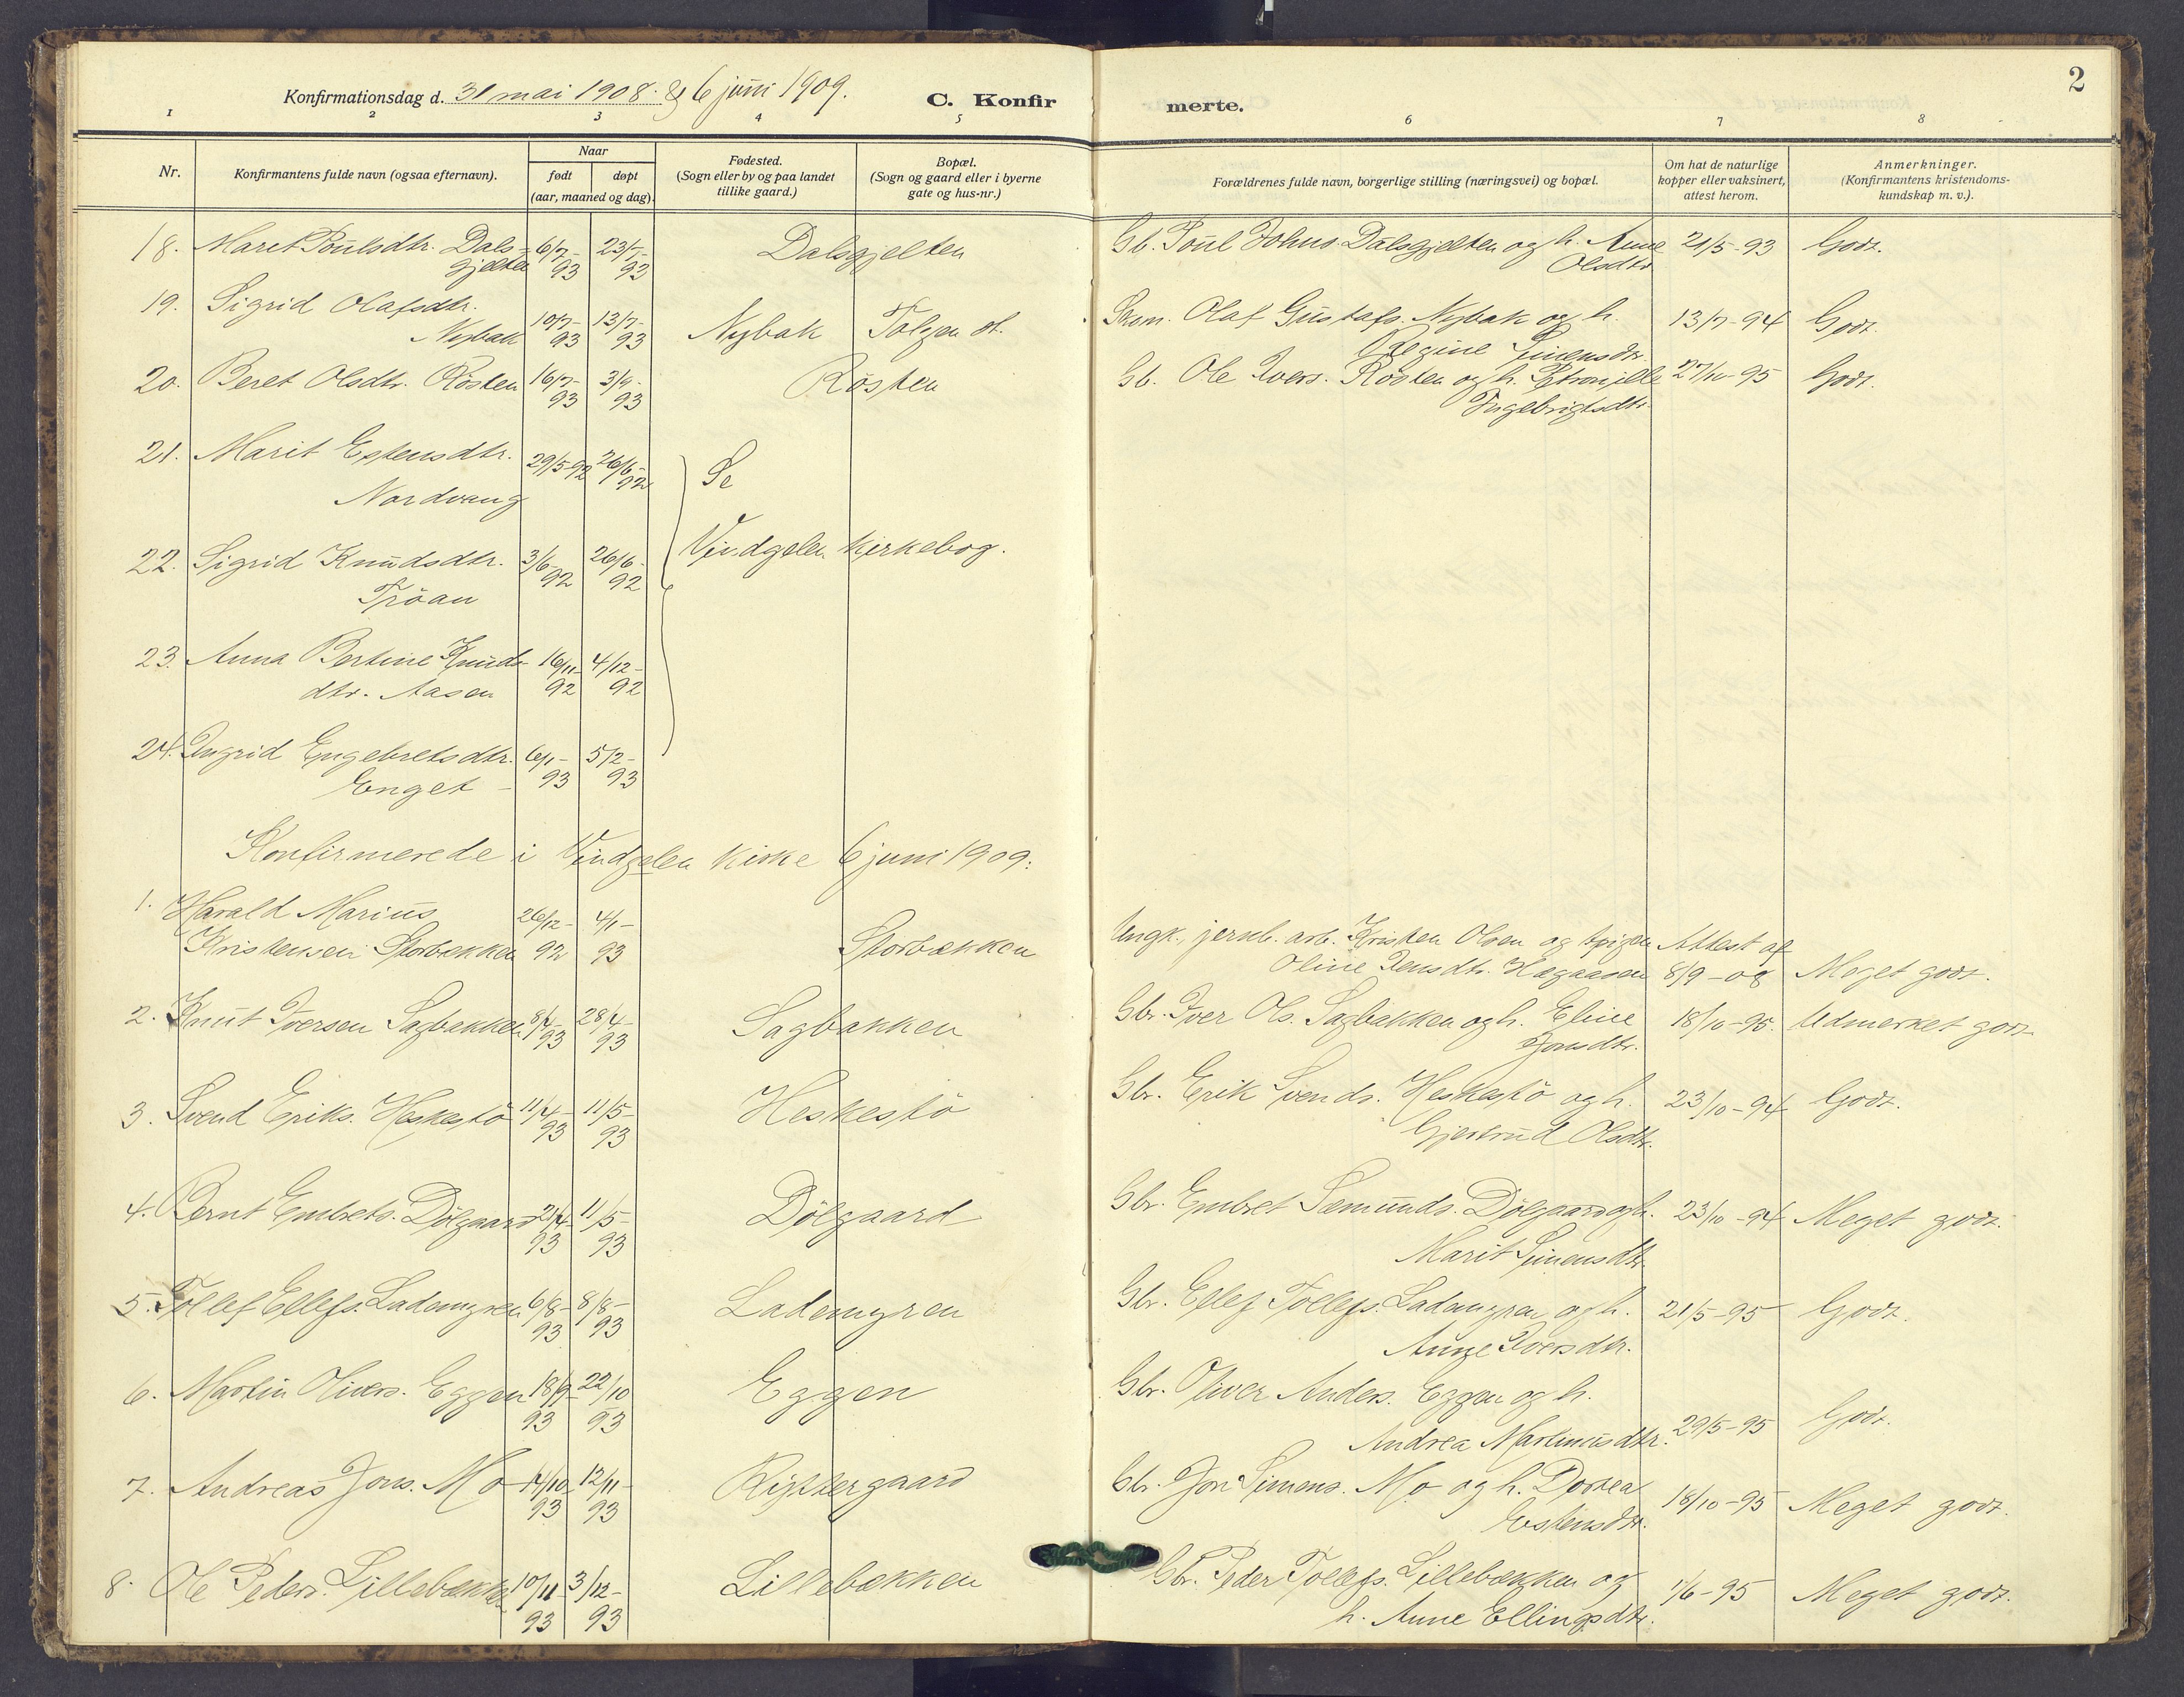 Konfirmationsdag d. 31 mai 1908 & 6 juni 1909. C. Konfir merte. 2
1 2 3 4 5 6 7 8
Nr.
Konfirmantens fulde navn (ogsaa efternavn).
Naar
født døpt
(aar, maaned og dag).
Fødested.
(Sogn eller by og paa landet
tillike gaard.)
Bopæl.
(Sogn og gaard eller i byerne
gate og hus-nr.)
Forældrenes fulde navn, borgerlige stilling (næringsvei) og bopæl.
Om hat de naturlige
kopper eller vaksinert,
attest herom.
Anmerkninger.
(Konfirmantens kristendoms-
kundskap m. v.).
18. Maret Poulsdtr. Dals- 6/7- 23/7- Dalsgjelten Gb. Poul Johns. Dalsgjelten og h. Anne 21/5-93 Godt.
gjelten 93 93 Olsdtr
19. Sigrid Olafsdtr. 10/7- 13/7- Nybak Tolgen st. Olaf Gustafs. Nybak og h. 13/7-94 Godt.
Nybak 93 93 Regine Simensdtr.
20. Beret Olsdtr. Røsten 16/7- 3/9- Røsten Gb. Ole Ivers. Røsten og h. Petronille 27/10-95 Godt.
93 93 Ingebrigtsdtr.
21. Marit Estensdtr. 29/5-92 26/6- Se
Nordvang 92
22. Sigrid Knudsdtr. 3/6- 26/6- Vindgelen kirkebog.
Trøan 92 92
23. Anna Bertine Knuds- 16/11- 4/12-
dtr. Aasen 92 92
24. Ingrid Engebretsdtr. 6/1- 5/2-
Enget - 93 93
Konfirmerede i Vindgelen kirke 6 juni 1909:
1. Harald Marius 26/12- 4/1- Ungk., jernb. arb. Kristen Olsen og pigen Attest af
Kristensen Storbækken 92 93 Storbækken Oline Jensdtr. Hægaasen 8/9-08 Meget godt.
2. Knut Iversen Sagbakken 8/4- 28/4- Sagbakken Gbr. Iver Ols. Sagbakken og h. Eline 18/10-95. Udmerket godt
93 93 Jonsdtr.
3. Svend Eriks. Heskestø 11/4- 11/5- Heskestø Gbr. Erik Svends. Heskestø og h. 23/10-94 Godt.
93 93 Gjertrud Olsdtr.
4. Bernt Embrets. Dølgaard 21/4- 11/5- Dølgaard Gbr. Embret Sæmunds. Dølgaard og h. 23/10-94 Meget godt.
93 93 Marit Simensdtr
5. Tollef Ellefs. Lademyren 6/8- 8/8- Lademyren Gbr. Ellef Tollefs. Lademyren og h. 21/5-95 Godt.
93 93 Anne Iversdtr.
6. Martin Olivers. Eggen 18/9- 22/10 Eggen Gbr. Oliver Anders. Eggen og h.
93 93 Andrea Martinusdtr. 29/5-95 Godt.
7. Andreas Jons. Mo 14/10- 12/11- Gbr. Jon Simens. Mo og h. Dortea 18/10-95 Meget godt.
93 93 Estensdtr.
8. Ole Peders. Lillebækken 10/11 3/12- Lillebækken Gbr. Peder Tollefs. Lillebækken og 1/6-95 Meget godt.
93 93 h. Anne Ellingsdtr.